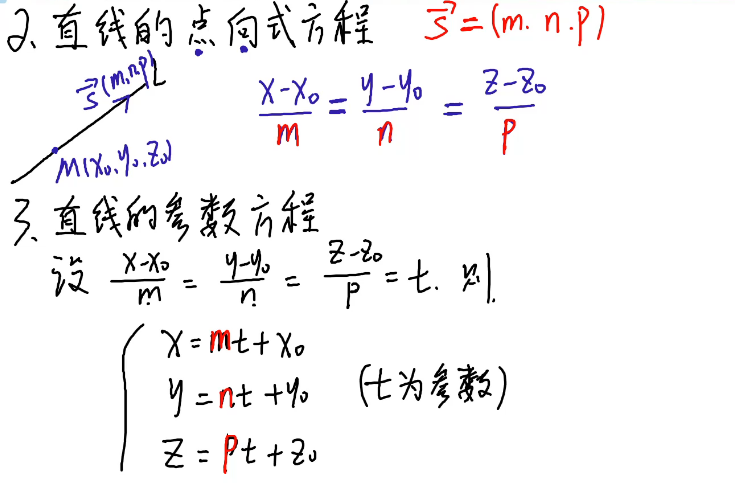 2、直线的点向式方程 s⃗=(m.n.p)
s⃗(m,n,p) L
M(x₀,y₀,z₀)
(x-x₀)/m = (y-y₀)/n = (z-z₀)/p
3、直线的参数方程
设 (x-x₀)/m = (y-y₀)/n = (z-z₀)/p = t. 则
x=mt+x₀
y=nt+y₀ (t为参数)
z=pt+z₀